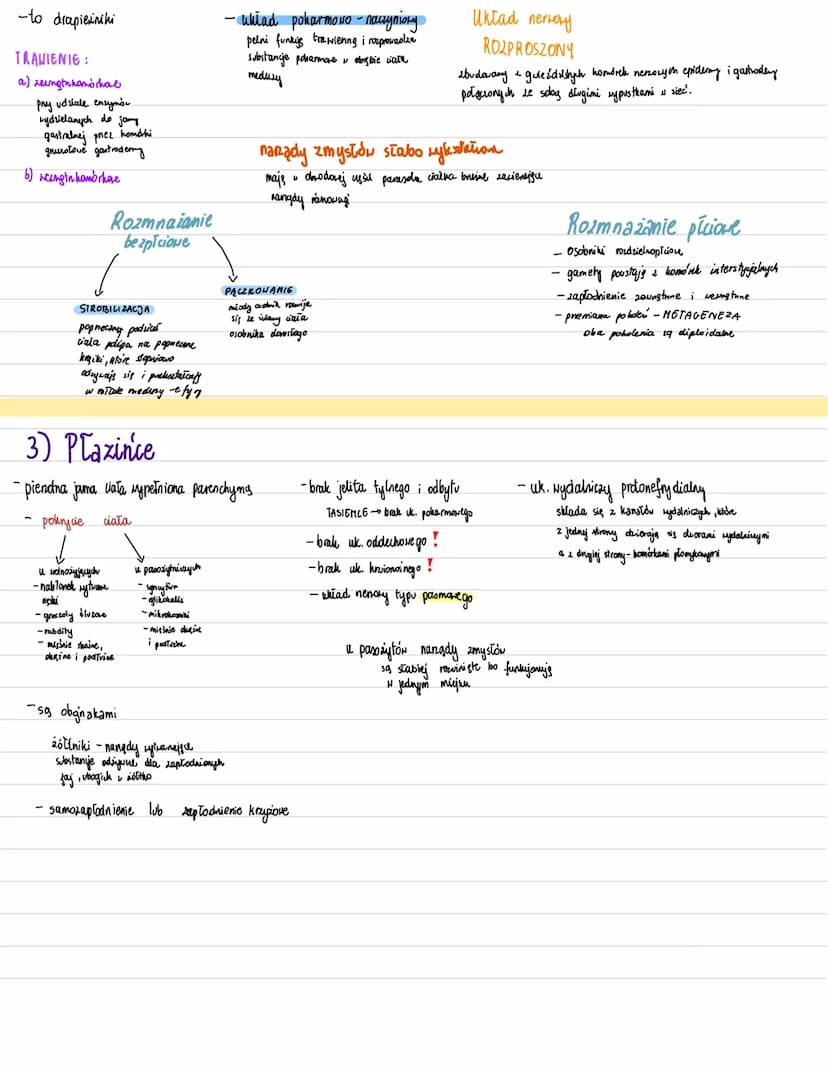 -to drapieżniki
TRAWIENIE:
a) zewnątrzkomórkowe
przy udziale enzymów
wydzielanych do jamy
gastralnej przez komórki
gruczołowe gastrodermy
b) wewnątrzkomórkowe
- układ pokarmowo-naczyniowy
pełni funkcję trawienną i rozprowadza
substancje pokarmowe w obrębie ciała
meduzy
Układ nerwowy
ROZPROSZONY
zbudowany z gwiaździstych komórek nerwowych epidermy i gastrodermy
połączonych ze sobą długimi wypustkami w sieć.
narządy zmysłów słabo wykształcone
mają w obwodowej części parasola ciałka brzeżne zawierające
narządy równowagi
Rozmnażanie
bezpłciowe
STROBILIZACJA
poprzeczny podział
ciała polipa na poprzeczne
krążki, które stopniowo
odrywają się i przekształcają
w młode meduzy - efyry
PĄCZKOWANIE
młody osobnik rozwija
się ze ściany ciała
osobnika dorosłego
Rozmnażanie płciowe
- osobniki rozdzielnopłciowe
- gamety powstają z komórek interstycjalnych
- zapłodnienie zewnętrzne i wewnętrzne
- przemiana pokoleń - METAGENEZA
oba pokolenia są diploidalne
3) Płazińce
- pierwotna jama ciała wypełniona parenchymą
- pokrycie ciała
u wolnożyjących
- nabłonek wytwarza
rzęski
- gruczoły śluzowe
- rabdity
- mięśnie skośne,
okrężne i podłużne
u pasożytniczych
- syncytium
- glikokaliks
- mikrokosmki
- mięśnie okrężne
i podłużne
- brak jelita tylnego i odbytu
TASIEMCE → brak uk. pokarmowego
- brak uk. oddechowego !
- brak uk. krwionośnego !
- układ nerwowy typu pasmowego
u pasożytów narządy zmysłów
są słabiej rozwinięte bo funkcjonują
w jednym miejscu
- uk. wydalniczy protonefrydialny
składa się z kanałów wydalniczych, które
z jednej strony otwierają się otworami wydalniczymi
a z drugiej strony - komórkami płomykowymi
- są obojnakami
żółtniki - narządy wytwarzające
substancje odżywcze dla zapłodnionych
jaj, ubogich w żółtko
- samozapłodnienie lub zapłodnienie krzyżowe